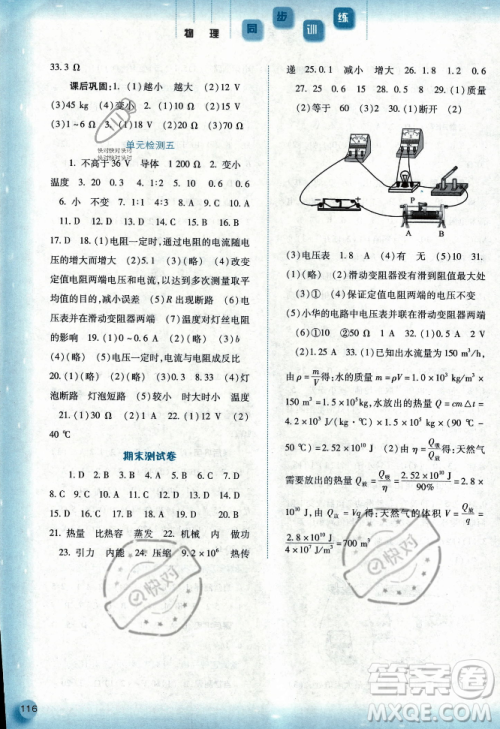 物理 同步训练
33.3 Ω
课后巩固：1.(1)越小 越大 (2)12 V
(3)45 kg (4)变小 2.(1)18 V (2)0.2 A
(3)1~6 Ω 3.
单元检测五
1. 不高于36 V 导体 1 200 Ω 2. 变小
温度 3. 20 0.3 4. 1 0.5 5. 0.2 0.6
6. 小 不变 7. D 8. B 9. D 10. A
11. C 12. A 13. B 14. D 15. D 16. B
17. D 18. (1)电阻一定时，通过电阻的电流随电
压的增大而增大 (2)(略) (3)(略) (4)改变
定值电阻两端电压和电流，以达到多次测量取
平均值的目的，减小误差 (5)出现断路 (6)电
压表并在滑动变阻器两端 (7)温度对灯丝电阻
的影响 19. (1)0~0.6 A (2)10 (3)(略)
(4)(略) (5)电压一定时，电流与电阻成反比
20. (1)(略) (2)(略) (3)0.3 (4)灯
泡断路 灯泡短路 时大时小 (略) (5)
21. (1)6 V (2)9 V 22. (1)12 Ω (2)
40 ℃
期末测试卷
1. D 2. B 3. D 4. C 5. B 6. D
7. D 8. C 9. D 10. B 11. A 12. D
13. C 14. C 15. D 16. B 17. B 18. D
19. C 20. B
21. 热量 比热容 蒸发 22. 机械 内 做功
23. 引力 内能 24. 压缩 9.2×10⁶ 热传
递 25. 0.1 减小 增大 26. 1.8 1.2 0.6
27. 25 28. 2 0.6 29. 0.8 30. (1)质量
(2)等于 60 31. (1)断开 (2)
A B P
(3)电压表 1.8 4 右 (5)10
32. (1)(略) (2)滑动变阻器没有滑到阻值最大处
(3)① (4)保证定值电阻的电压不变
(5)小华的电路中电压表并联在滑动变阻器两端
(6)(略) (7)①④ 33. (1)2 V (2)0.5 A
(2)1.25 A 34. (1)已知出水流量为150 m³/h，
由ρ=m/V得：水的质量m=ρV=1.0×10³ kg/m³×
150 m³=1.5×10⁵ kg 水放出的热量Q=cmΔt=
4.2×10³ J/(kg·℃)×1.5×10⁵ kg×(90 ℃−
50 ℃)=2.52×10¹⁰ J (2)由η=Q吸/Q放得：天然气
需要放出的热量Q放=Q吸/η=2.52×10¹⁰ J/90%=2.8×
10¹⁰ J，由Q放=Vq得：天然气的体积V=Q放/q=
2.8×10¹⁰ J/4×10⁷ J/m³=700 m³
快对
快对
答案圈
MXQE.COM
116